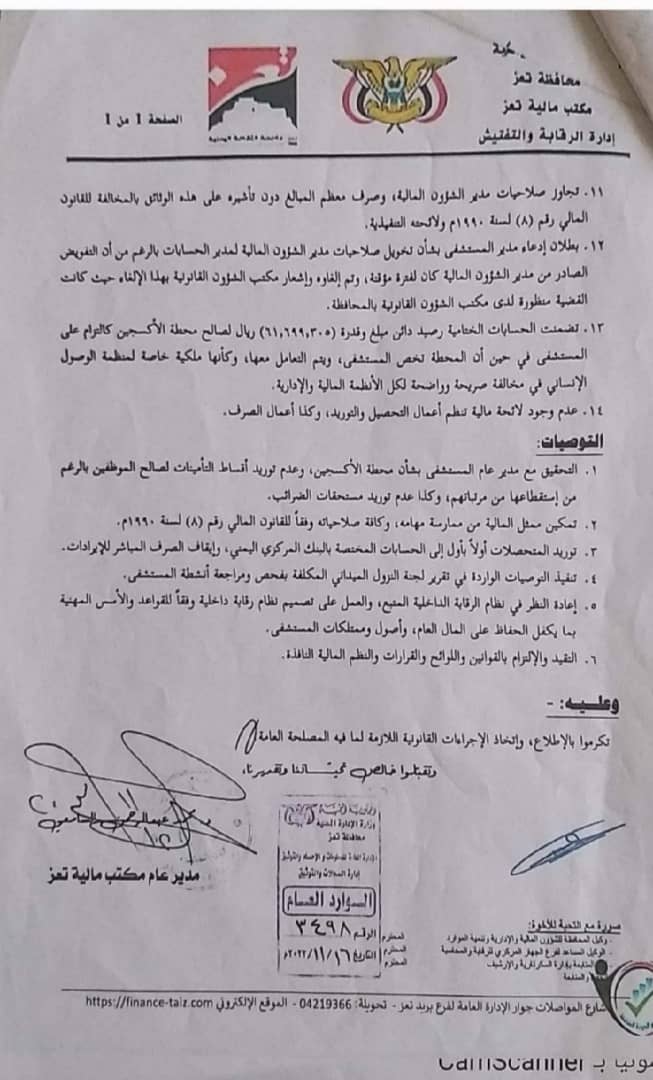 محافظة تعز
مكتب مالية تعز
إدارة الرقابة والتفتيش
تعز
الصفحة 1 من 1
١١. تجاوز صلاحيات مدير الشؤون المالية، وصرف معظم المبالغ دون تأشيره على هذه الوثائق بالمخالفة للقانون
المالي رقم (٨) لسنة ١٩٩٠م ولائحته التنفيذية.
١٢. بطلان إدعاء مدير المستشفى بشأن تخويل صلاحيات مدير الشؤون المالية لمدير الحسابات بالرغم من أن التفويض
الصادر من مدير الشؤون المالية كان لفترة مؤقتة، وتم إلغاؤه وإشعار مكتب الشؤون القانونية بهذا الإلغاء حيث كانت
القضية منظورة لدى مكتب الشؤون القانونية بالمحافظة.
١٣. تضمنت الحسابات الختامية رصيد دائن مبلغ وقدرة (٦١,٦٩٩,٣٠٥) ريال لصالح محطة الأكسجين كالتزام على
المستشفى في حين أن المحطة تخص المستشفى، ويتم التعامل معها، وكأنها ملكية خاصة لمنظمة الوصول
الإنساني في مخالفة صريحة وواضحة لكل الأنظمة المالية والإدارية.
١٤. عدم وجود لائحة مالية تنظم أعمال التحصيل والتوريد، وكذا أعمال الصرف.
التوصيات:
١. التحقيق مع مدير عام المستشفى بشأن محطة الأكسجين، وعدم توريد أقساط التأمينات لصالح الموظفين بالرغم
من إستقطاعها من مرتباتهم، وكذا عدم توريد مستحقات الضرائب.
٢. تمكين ممثل المالية من ممارسة مهامه، وكافة صلاحياته وفقاً للقانون المالي رقم (٨) لسنة ١٩٩٠م.
٣. توريد المتحصلات أولاً بأول إلى الحسابات المختصة بالبنك المركزي اليمني، وإيقاف الصرف المباشر للإيرادات.
٤. تنفيذ التوصيات الواردة في تقرير لجنة النزول الميداني المكلفة بفحص ومراجعة أنشطة المستشفى.
٥. إعادة النظر في نظام الرقابة الداخلية المتبع، والعمل على تصميم نظام رقابة داخلية وفقاً للقواعد والأسس المهنية
بما يكفل الحفاظ على المال العام، وأصول وممتلكات المستشفى.
٦. التقيد والإلتزام بالقوانين واللوائح والقرارات والنظم المالية النافذة.
وعليه: -
تكرموا بالإطلاع، وإتخاذ الإجراءات القانونية اللازمة لما فيه المصلحة العامة
وتقبلوا خالص تحياتنا وتقديرنا،
مدير عام مكتب مالية تعز
وزارة الإدارة المحلية
محافظة تعز
إدارة السجلات والتوثيق
الوارد العام
الرقم ٣٤٩٨
التاريخ ١٦/١١/٢٠٢٢م
صورة مع التحية للأخوة:
- وكيل المحافظة للشؤون المالية والإدارية وتنمية الموارد المحترم
- الوكيل المساعد لفرع الجهاز المركزي للرقابة والمحاسبة المحترم
المحترم
شارع المواصلات جوار الإدارة العامة لفرع بريد تعز - تحويلة: 04219366 - الموقع الإلكتروني https://finance-taiz.com
CamScanner